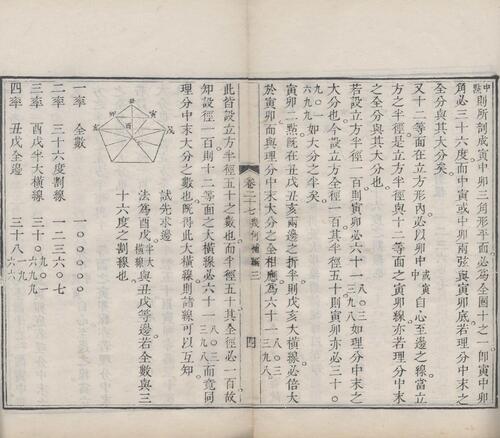 中點則所剖成寅中卯三角形形必為全圜十之一卽寅中卯
角必三十六度而中寅或中卯兩弦與寅卯底若理分中末之
全分與其大分矣
又十二等面在立方形內必以卯中或寅中自心至邊之線當立
方之半徑是立方半徑與十二等面之寅卯線亦若理分中末
之全分與其大分也
若設立方全徑一百則寅卯必六十一八〇三三九八如理分中末之
大分也今設立方全徑一百其半徑五十則寅卯亦必三十〇
九〇一六九九如大分之半矣
寅卯二點旣在丑戊丑亥兩邊之折半則戊亥大橫線必倍大
卷二十七幾何補編三
四
於寅卯而與理分中末大分之全相應為六十一八〇三三九八
此皆設立方半徑五十之數也而半徑五十其全徑必一百故
知設徑一百則十二等面之大橫線必六十一八〇三三九八而竟同
理分中末大分之數也旣得此大橫線則諸線可以互知
丑
寅
卯
戊
亥
酉
試先求邊
法為酉戊半大橫線與丑戊等邊若全數與三
十六度之割線也
一率 全數 一〇〇〇〇〇
二率 三十六度割線 一二三六〇七
三率 酉戊半大橫線 三十〇九〇一六九九
四率 丑戊全邊 三十八一九六六